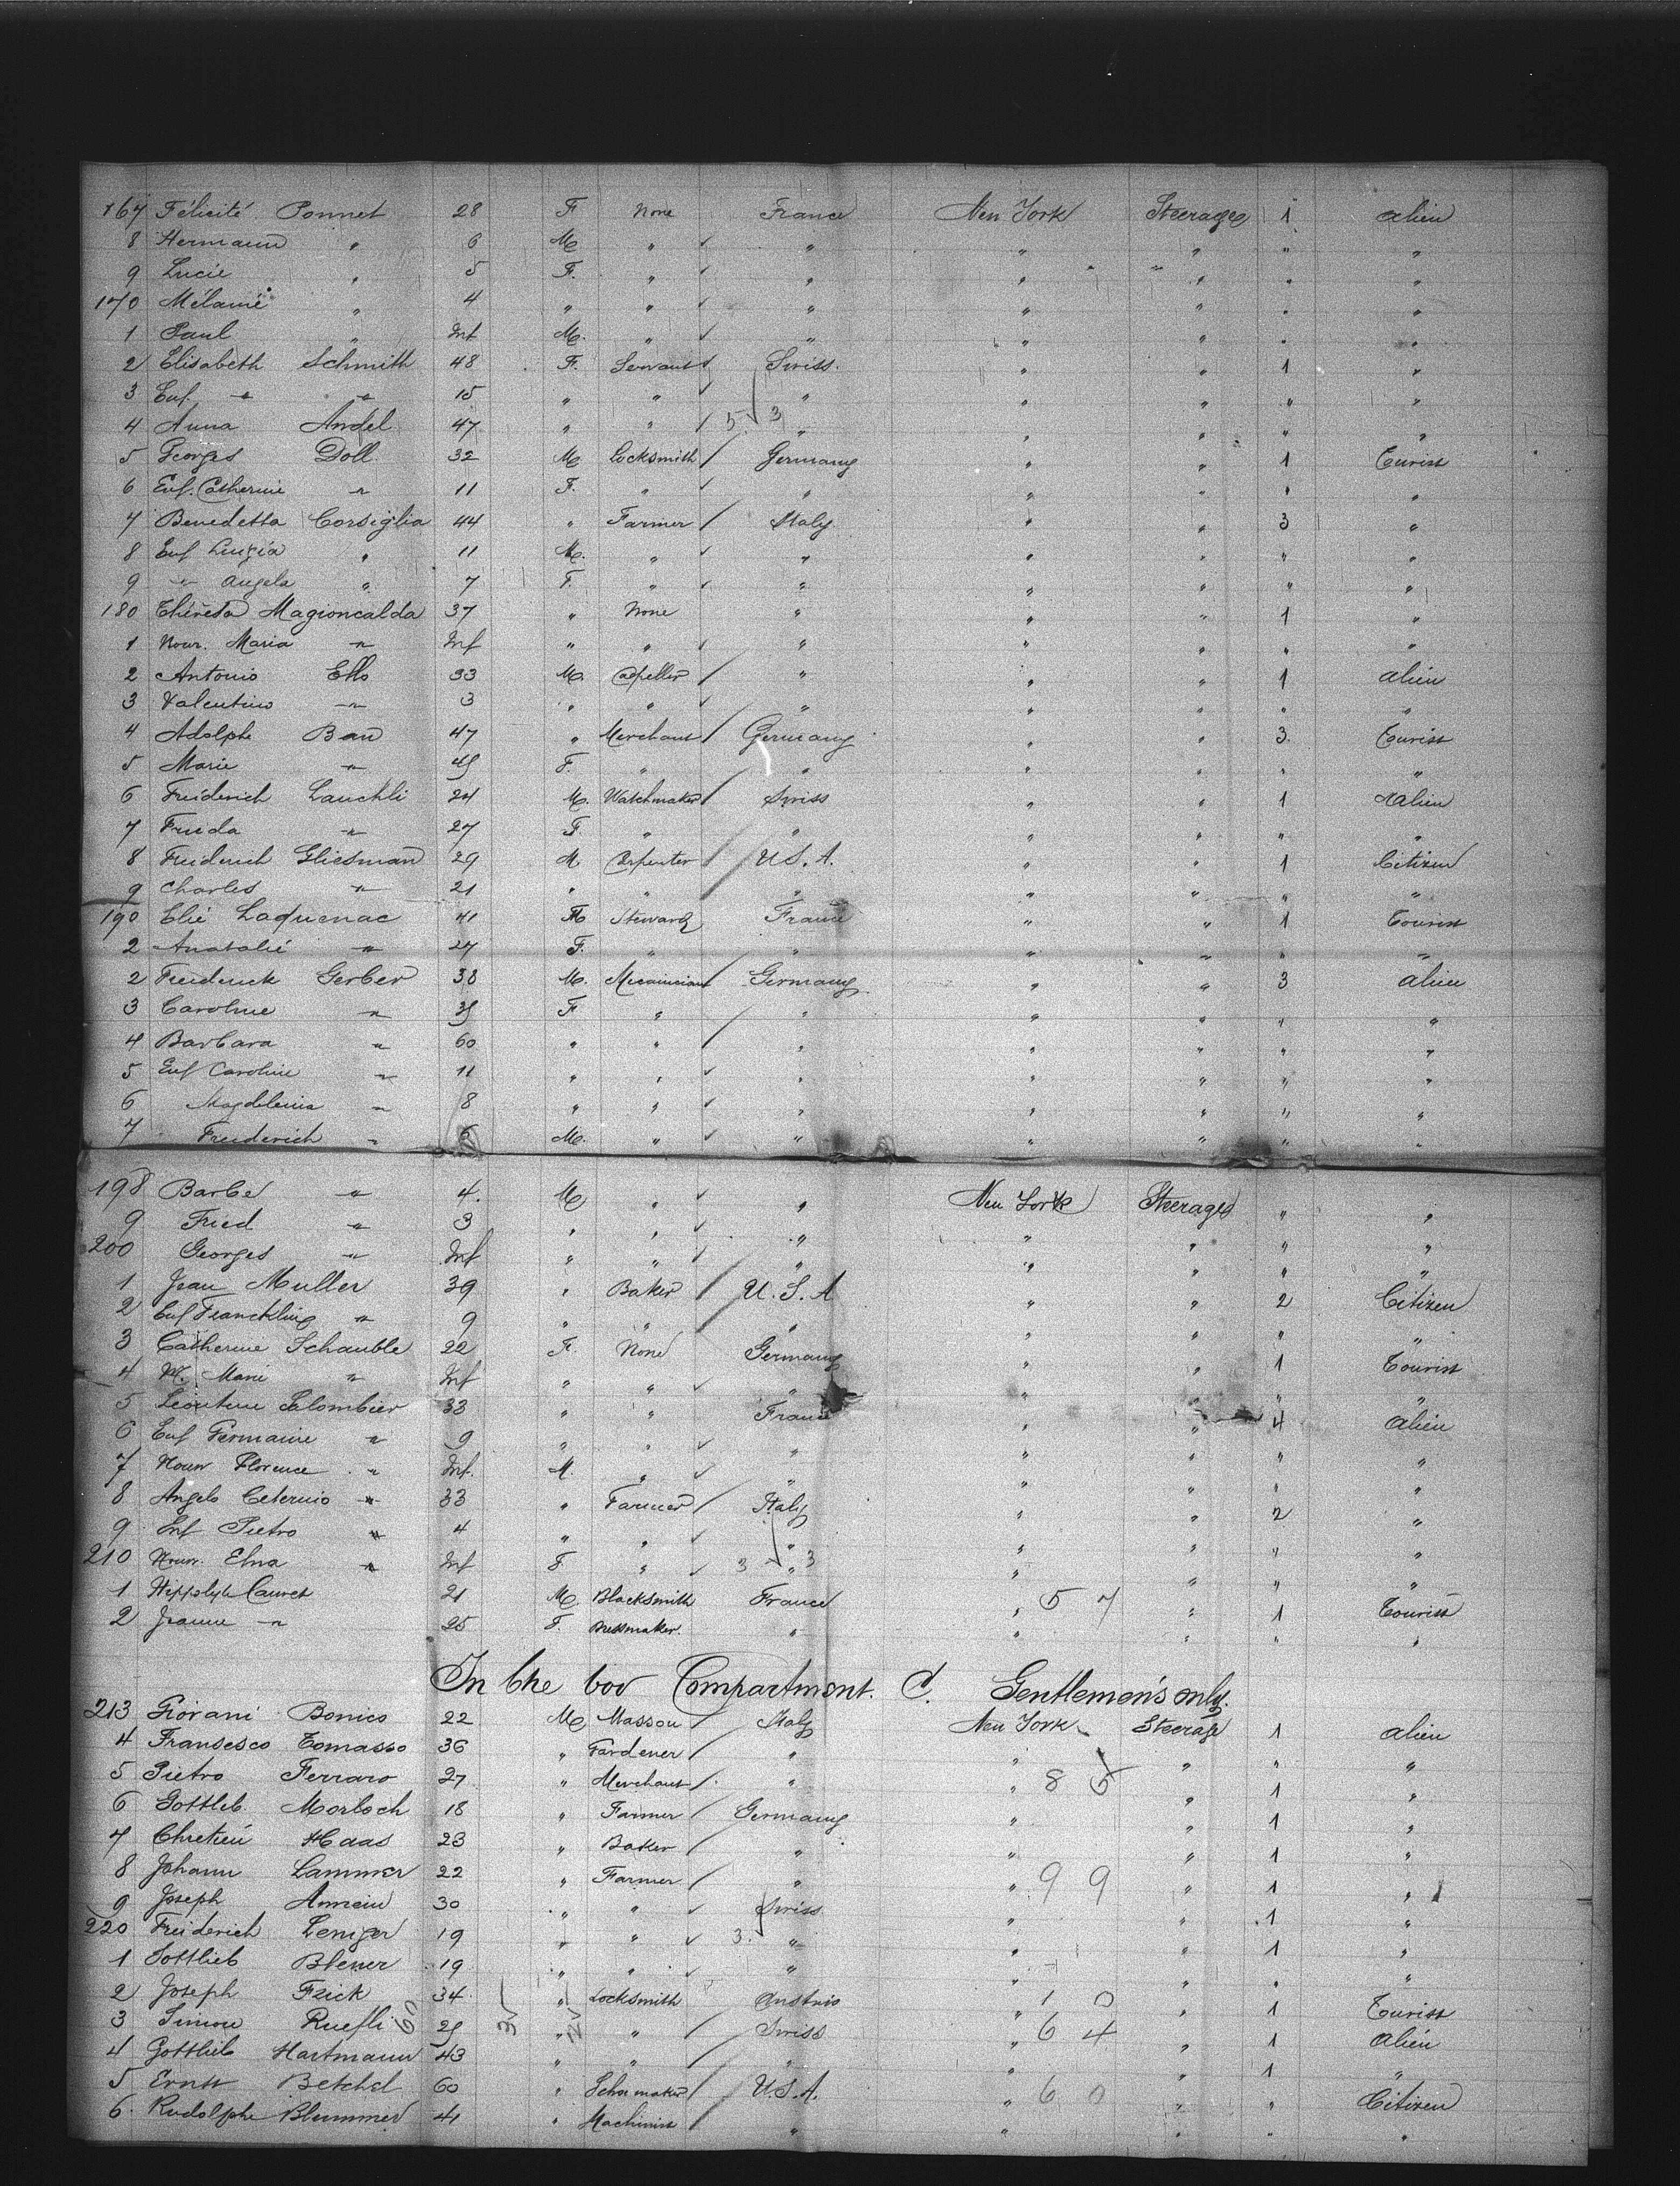 167 Félicité Ponnet 28 F None France New York Steerage 1 alien
8 Hermann " 6 M " " " " " "
9 Lucie " 5 F. " " " " " "
170 Mélanie " 4 " " " " " " "
1 Paul " Inf M. " " " " " "
2 Elisabeth Schmith 48 F. Servant Swiss. " " 1 "
3 Enf. " " 15 " " " " " " "
4 Anna Andel 47 " " 5 3 " " " " "
5 Georges Doll 32 M locksmith Germany " " 1 Tourist
6 Enf. Catherine " 11 F. " " " " " "
7 Benedetta Corsiglia 44 " Farmer Italy " " 3 "
8 Enf Luigia " 11 M. " " " " " "
9 " Angela " 7 F. " " " " " "
180 Théresa Magioncalda 37 " None " " " 1 "
1 Nour. Maria " Inf " " " " " " "
2 Antonio 33 M. " " " 1 alien
3 Valentino " 3 " " " " " " "
4 Adolphe Bau 47 " Merchant Germany " " 3. Tourist
5 Marie " 45 F. " " " " " "
6 Freiderich Lauchli 24 M. Watchmaker Swiss " " 1 Alien
7 Frieda " 27 F. " " " " " "
8 Freiderich Gliesman 29 M Carpenter U S. A. " " 1 Citizen
9 Charles " 21 " " " " " " "
190 Elie Laquenac 41 M Steward France " " 1 Tourist
2 Anatalié " 27 F. " " " " " "
2 Freiderick Gerber 38 M. Mecanician Germany " " 3 alien
3 Caroline " 35 F " " " " " "
4 Barbara " 60 " " " " " " "
5 Enf Caroline " 11 " " " " " " "
6 Magdelena " 8 " " " " " " "
7 Freiderich " 6 M. " " " " " "
198 Barbe " 4. M " " New York Steerage " "
9 Fried " 3 " " " " " " "
200 Georges " Inf " " " " " " "
1 Jean Muller 39 " Baker U. S. A " " 2 Citizen
2 Enf Francklin " 9 " " " " " " "
3 Catherine Schauble 22 F. None Germany " " 1 Tourist
4 N. Marie " Inf " " " " " " "
5 Léontine Colombier 33 " " France " " 4 alien
6 Enf Germaine " 9 " " " " " " "
7 Nour Florence " Inf. M. " " " " " "
8 Angelo Ceternio " 33 " Farmer Italy " " 2 "
9 Enf Pietro " 4 " " " " " " "
210 Nour. Elna " Inf F " 3 " 3 " " " "
1 Hippolyte Cauvet 21 M. Blacksmith France " 5 7 " 1 Tourist
2 Jeanne " 25 F. Dressmaker. " " " " "
In the bov Compartment. C. Gentlemen's only.
213 Giovani Bonico 22 M Masson Italy New York Steerage 1 alien
4 Fransesco Tomasso 36 " Gardener " " " " "
5 Pietro Ferraro 27 " Merchant " " 8 5 " 1 "
6 Gottleb Morloch 18 " Farmer Germany " " 1 "
7 Chretien Haas 23 " Baker " " " 1 "
8 Johann Lammer 22 " Farmer " " 9 9 " 1 "
9 Joseph Annein 30 " " Swiss " " 1 "
220 Freiderich Leniger 19 " " 3. " " " 1 "
1 Gottlieb Blener 19 " " " " " " "
2 Joseph Frick 34 " Locksmith Austria " 1 0 " 1 Tourist
3 Simon Ruefli 25 " " Swiss " 6 4 " 1 Alien
4 Gottlieb Hartmann 43 " " " " " 1 "
5 Ernst Betchel 60 " Schoemaker U. S. A. " 6 0 " " Citizen
6. Rudolphe Blummer 41 " Machinist " " " " "